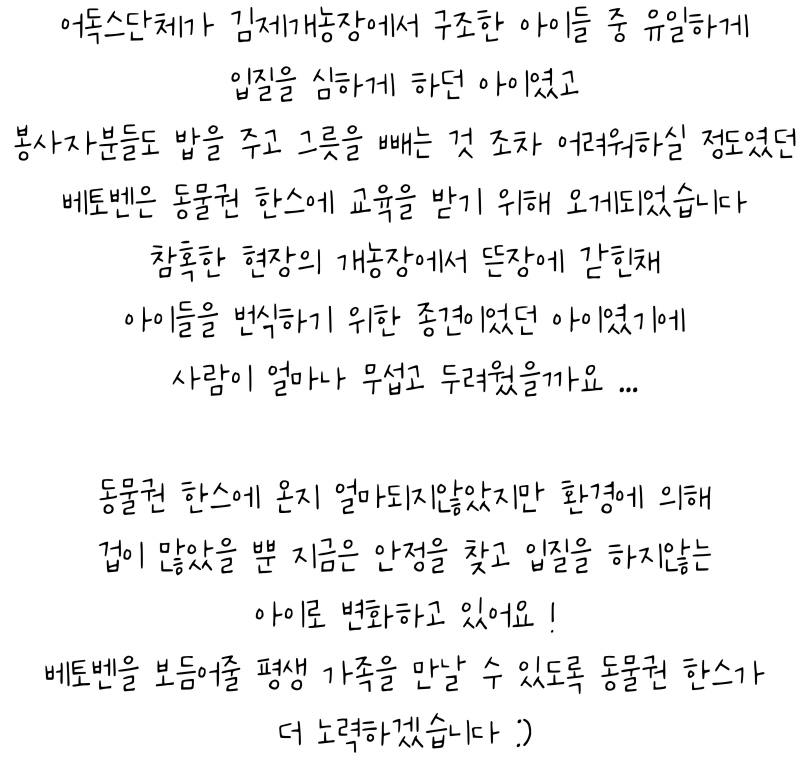 어독스단체가 김제개농장에서 구조한 아이들 중 유일하게
입질을 심하게 하던 아이였고
봉사자분들도 밥을 주고 그릇을 빼는 것 조차 어려워하실 정도였던
베토벤은 동물권 한스에 교육을 받기 위해 오게되었습니다
참혹한 현장의 개농장에서 뜬장에 갇힌채
아이들을 번식하기 위한 종견이었던 아이였기에
사람이 얼마나 무섭고 두려웠을까요 ...
동물권 한스에 온지 얼마되지않았지만 환경에 의해
겁이 많았을 뿐 지금은 안정을 찾고 입질을 하지않는
아이로 변화하고 있어요 !
베토벤을 보듬어줄 평생 가족을 만날 수 있도록 동물권 한스가
더 노력하겠습니다 :)